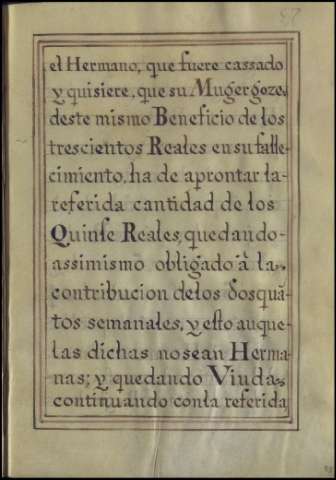 el Hermano, que fuere cassado
y quisiere, que su Muger goze,
deste mismo Beneficio de los
trescientos Reales en su falle-
cimiento, ha de aprontar la-
referida cantidad de los
Quinse Reales, quedando-
assimismo obligado â la
contribucion de los dos quã-
tos semanales, y esto auque
las dichas no sean Herma-
nas; y quedando Viuda
continuando con la referida